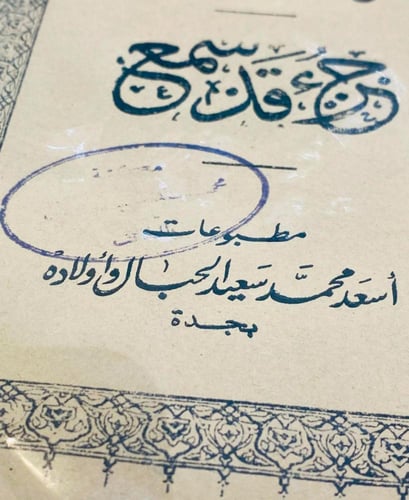 جزء قد سمع
مطبوعات
أسعد محمد سعيد الحبال وأولاده
بجدة